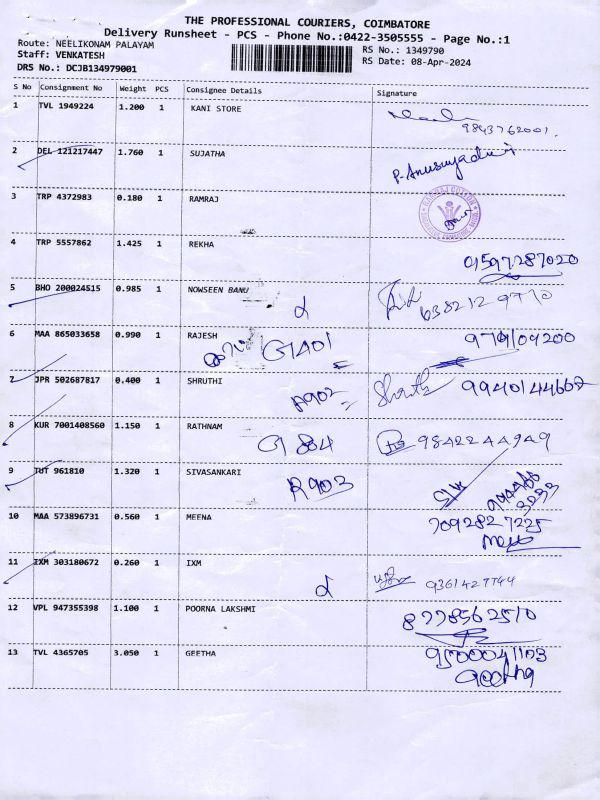 THE PROFESSIONAL COURIERS, COIMBATORE
Delivery Runsheet - PCS - Phone No.:0422-3505555 - Page No.:1
Route: NEELIKONAM PALAYAM RS No.: 1349790
Staff: VENKATESH RS Date: 08-Apr-2024
DRS No.: DCJB134979001
S No Consignment No Weight PCS Consignee Details Signature
1 TVL 1949224 1.200 1 KANI STORE
9843762001.
2 DEL 121217447 1.760 1 SUJATHA
P. Anusuyadevi
3 TRP 4372983 0.180 1 RAMRAJ
4 TRP 5557862 1.425 1 REKHA
01597287020
5 BHO 200024515 0.985 1 NOWSEEN BANU
6382129770
6 MAA 865033658 0.990 1 RAJESH
G1401
7 JPR 502687817 0.400 1 SHRUTHI
A902 Shruthi 9940144662
8 KUR 7001408560 1.150 1 RATHNAM
G 884 9842244949
9 TUT 961810 1.320 1 SIVASANKARI
R903 S/W
10 MAA 573896731 0.560 1 MEENA
7092827225
11 IXM 303180672 0.260 1 IXM
9361427744
12 VPL 947355398 1.100 1 POORNA LAKSHMI
8778562510
13 TVL 4365705 3.050 1 GEETHA
9500041103
Geetha